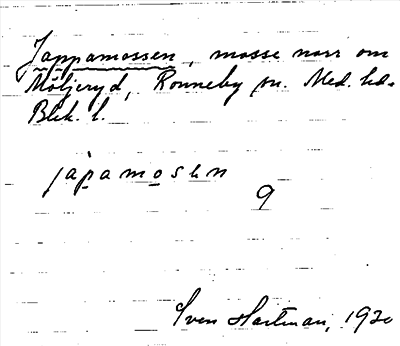 Jappamossen, mosse norr om
Möljeryd, Ronneby sn. Med. hd.
Blek. l.
japamosen
9
Sven Hartman, 1920